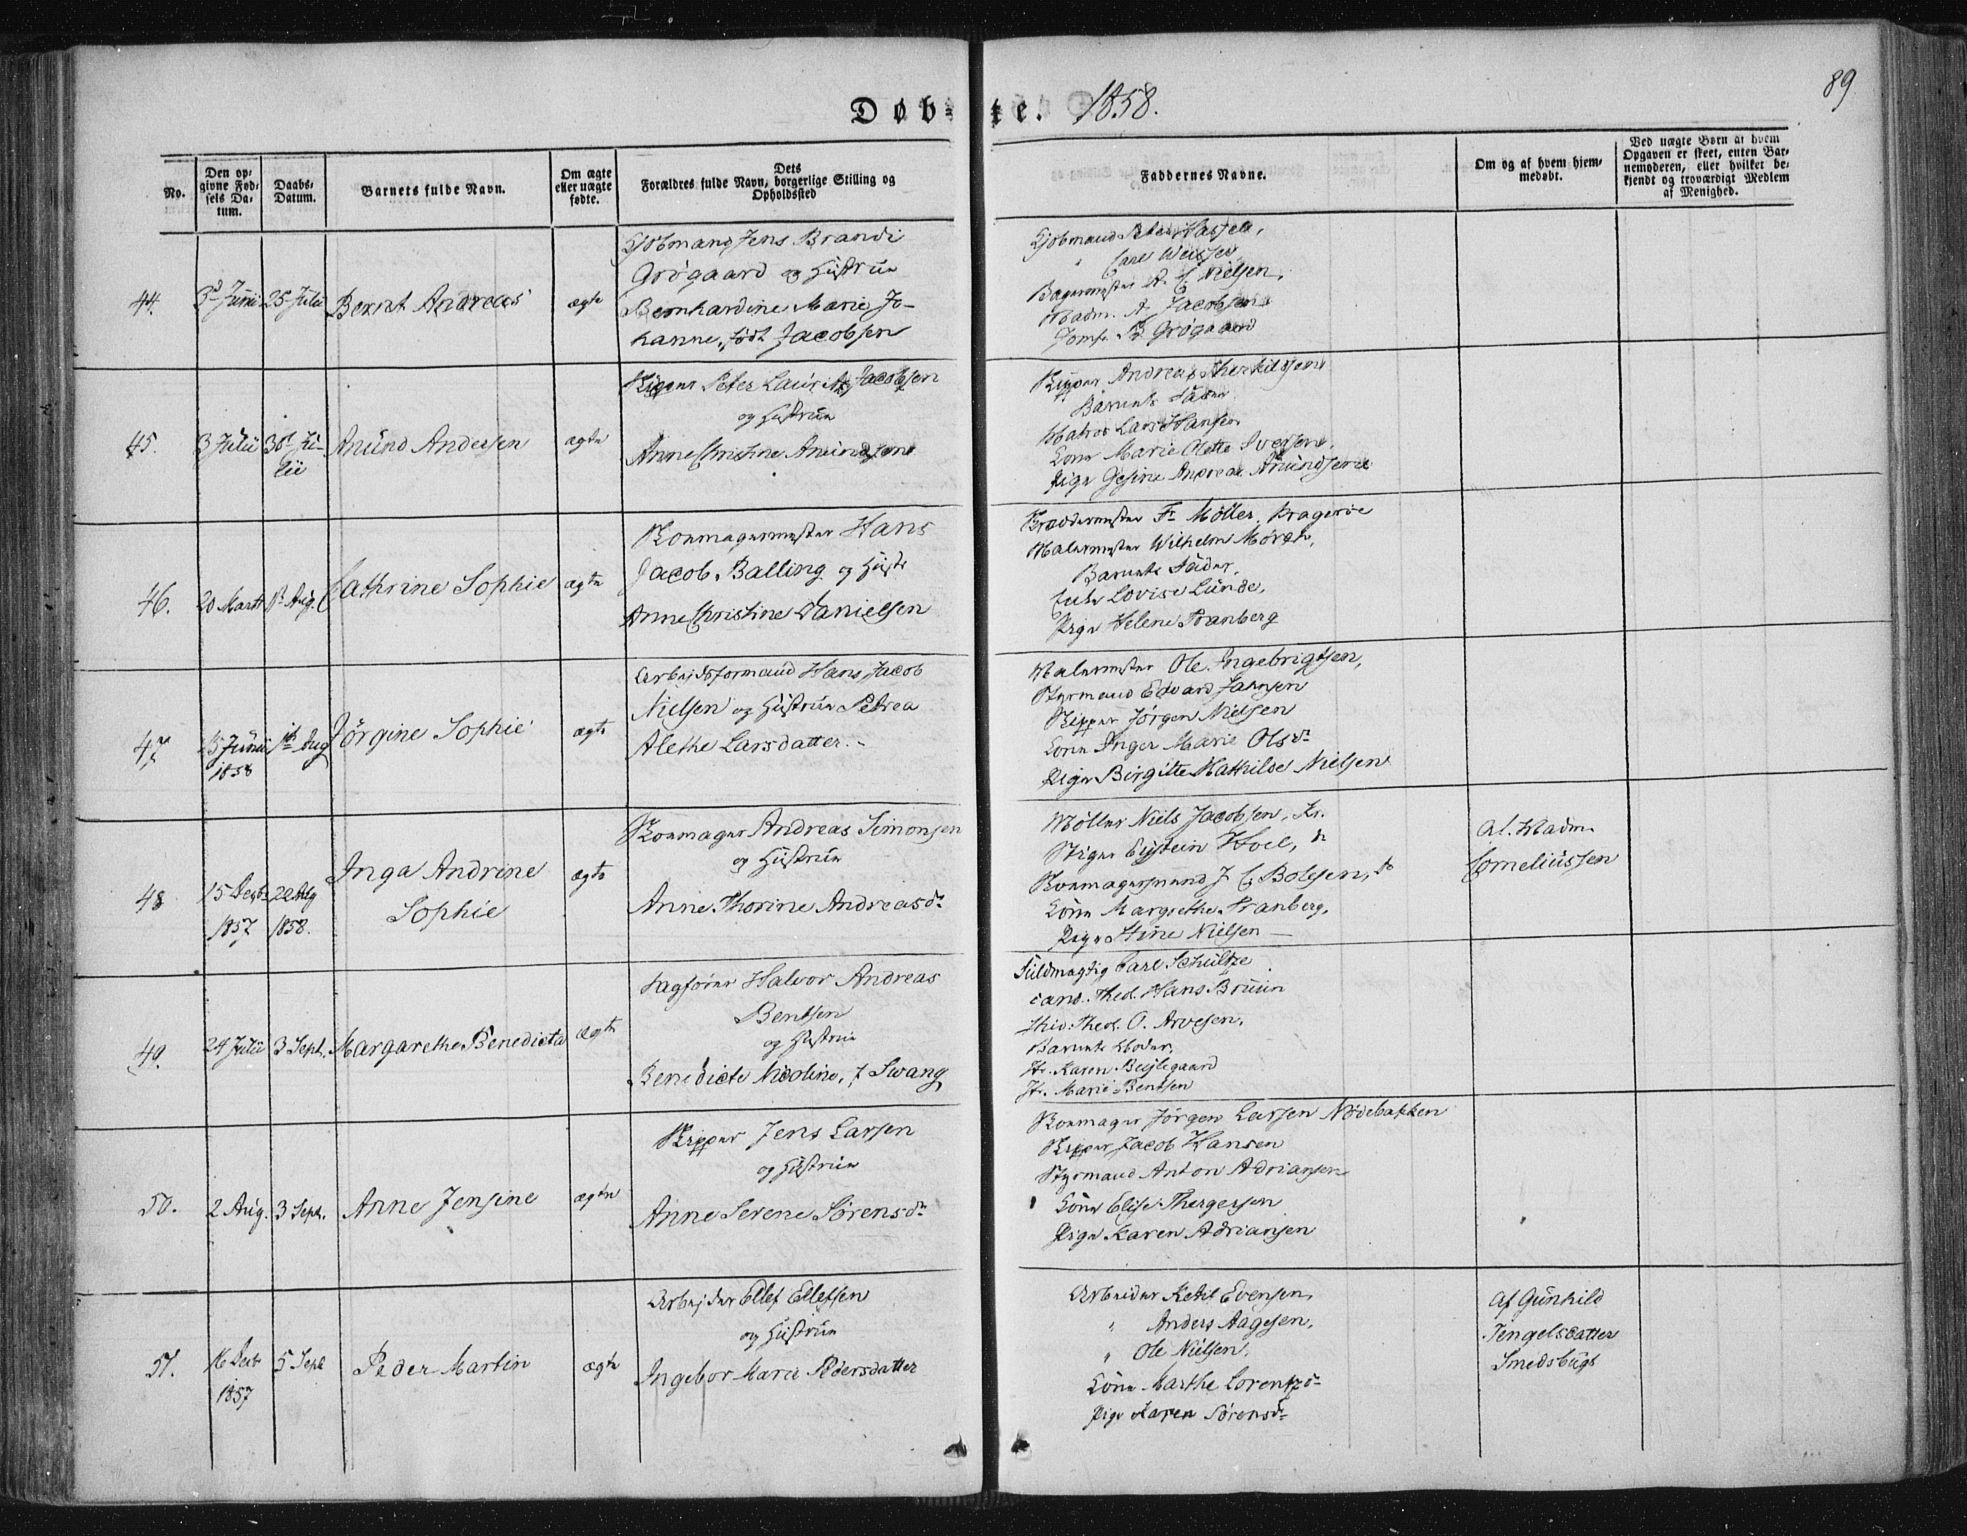 89
Døb- te. 1858.
No.
Den opgivne Fødsels Datum.
Daabs-Datum.
Barnets fulde Navn.
Om ægte eller uægte fødte.
Dets Forældres fulde Navn, borgerlige Stilling og Opholdssted
Faddernes Navne.
Om og af hvem hjemmedøbt.
Ved uægte Børn at hvem Opgaven er skeet, enten Barnemoderen, eller hvilket bekjendt og troværdigt Medlem af Menighed.
44.
3d Juni
25 Julii
Bernt Andreas
ægte
Kjøbmand Jens Brandi
Grøgaard og Hustrue
Bernhardine Marie Jo-
hanne, født Jacobsen
Kjøbmand Peter
Bagermester A. C. Nielsen,
Madm. A Jacobsen
Jomfr. B Grøgaard
45.
3 Julii
30t Ju-
lii
Anund Andersen
ægte
Skipper Peter Lauritz Jacobsen
og Hustrue
Anne Christine Amundsen
Skipper Andreas Therkildsen
Barnets Fader
Matros Lars Hansen
Kone Marie Olette Svendsen
Pige Gesine Andrea Amundsen
46.
20 Marts
1st Aug.
Cathrine Sophie
ægte
Skomagermester Hans
Jacob Balling og Hustr
Anne Christine Danielsen
Fr Møller, Kragerøe
Malermester Wilhelm
Barnets Fader,
Lovise Lunde,
Pige Helene Tranberg
47
Juni
1858
Aug
Jörgine Sophie
ægte
Arbejdsformand Hans Jacob
Nielsen og Hustrue Petrea
Alethe Larsdatter.
Malermester Ole Ingebrigtsen,
Styrmand Edvard Jahnsen
Skipper Jörgen Nielsen
Kone Inger Marie Olsdr
Pige Birgitte Mathilde Nielsen
48
15 Decbr
1857
22 Aug
1858.
Inga Andrine
Sophie
ægte
Skomager Andreas Simonsen
og Hustrue
Anne Thorine Andreasdr
Møller Niels Jacobsen, Kr.
Stiger Eystein Hoel, do
Skomagersvend J C Bolesen, do
Kone Margrethe Tranberg,
Pige Stine Nielsen
Af Madm.
Corneliussen
49.
24 Julii
3 Sept.
Margarethe Benedicta
ægte
Sagfører Halvor Andreas
Bentsen
og Hustrue
Benedicte Nicoline, f Swang
Fuldmægtig Carl Schultze
cand. Theol. Hans Bruun
Stud. Theol. O. Arvesen,
Barnets Moder,
Fr. Karen Bejlegaard
Fr. Marie Bentsen
50.
2 Aug.
3 Sept.
Anne Jensine
ægte
Skipper Jens Larsen
og Hustrue
Anne Serene Sörensdr
Skomager Jörgen Larsen Nødebakken
Skipper Jacob Hansen
Styrmand Anton Adriansen
Kone Elise Thorgersen
Pige Karen Adriansen
51.
16 Decbr
1857
5 Sept
Peder Martin
ægte
Arbejder Ellef Ellefsen
og Hustrue
Ingebor Marie Pedersdatter
Arbeider Ketil Evensen,
" Anders Aagesen,
" Ole Nielsen,
Kone Marthe Lorentzdr
Pige Karen Sørensdr
Af Gunhild
Tengelsdatter
Smedsbugt